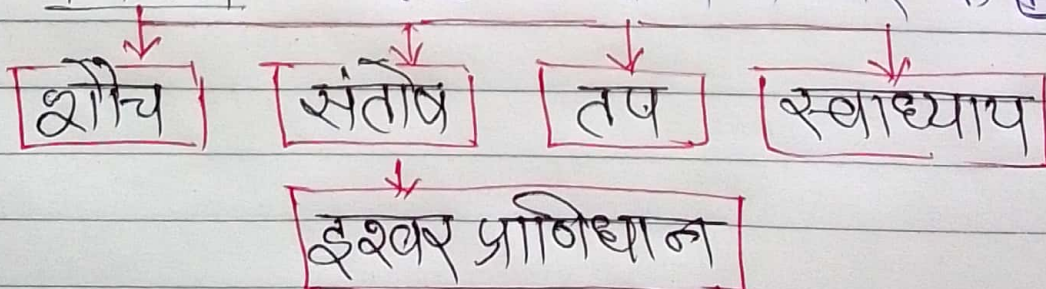 शौच संतोष तप स्वाध्याय
इश्वर प्राणिधान